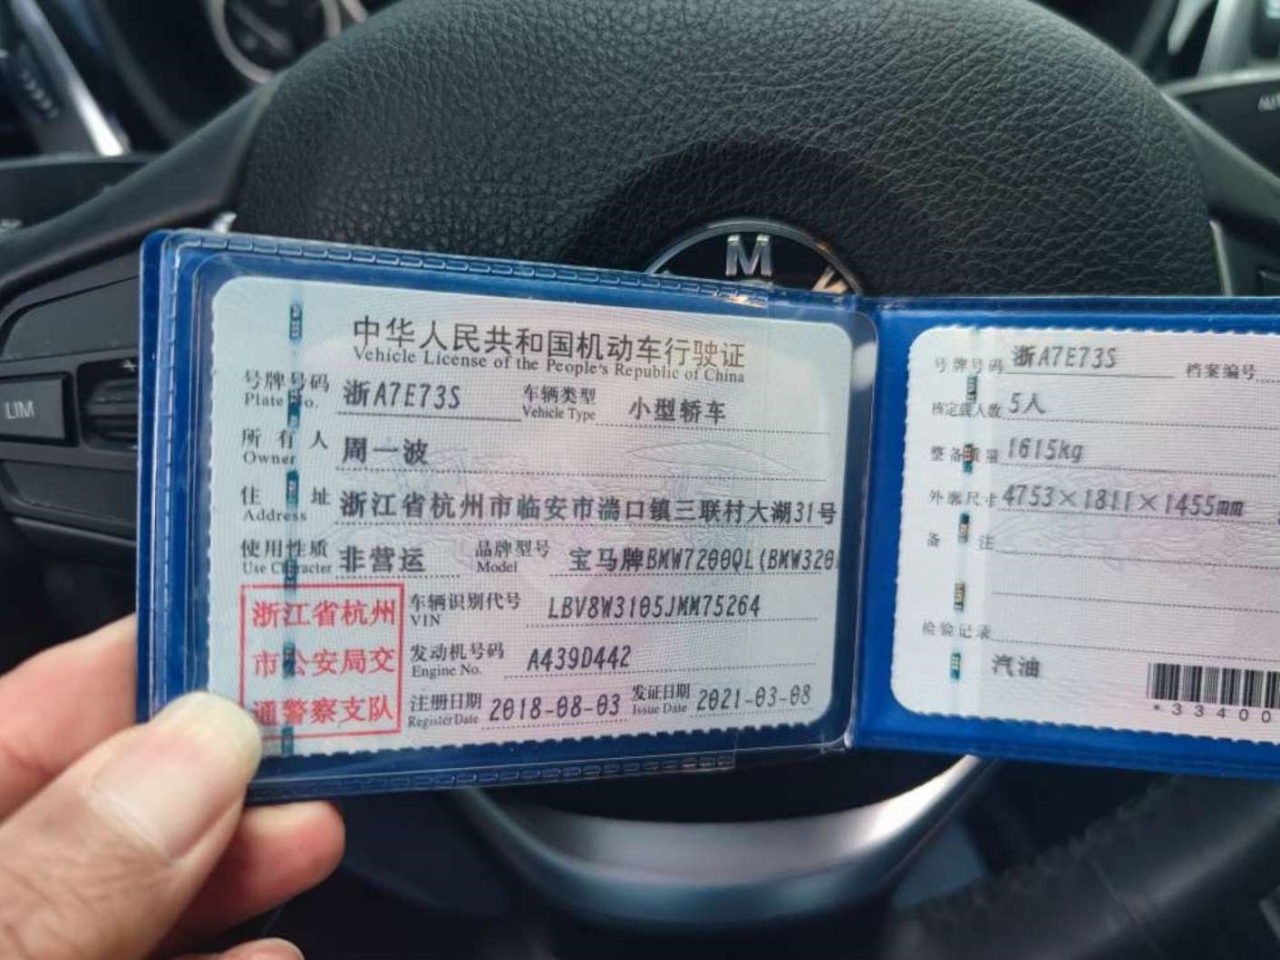 LIM
M
中华人民共和国机动车行驶证
Vehicle License of the People's Republic of China
号牌号码 浙A7E73S 车辆类型 小型轿车
Plate No. Vehicle Type
所有人 周一波
Owner
住址 浙江省杭州市临安市湍口镇三联村大湖31号
Address
使用性质 非营运 品牌型号 宝马牌BMW7200QL(BMW320
Use Character Model
浙江省杭州
市公安局交
通警察支队
车辆识别代号 LBV8W3105JMM75264
VIN
发动机号码 A439D442
Engine No.
注册日期 2018-08-03 发证日期 2021-03-08
Register Date Issue Date
号牌号码 浙A7E73S 档案编号
核定载人数 5人
整备质量 1615kg
外廓尺寸 4753×1811×1455mm
备注
检验记录
汽油
*33400